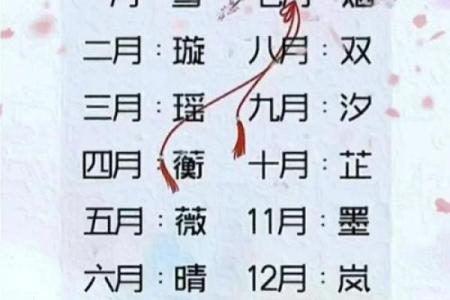 二月：璇 八月：双
三月：瑶 九月：汐
四月：蘅 十月：芷
五月：薇 11月：墨
六月：晴 12月：岚